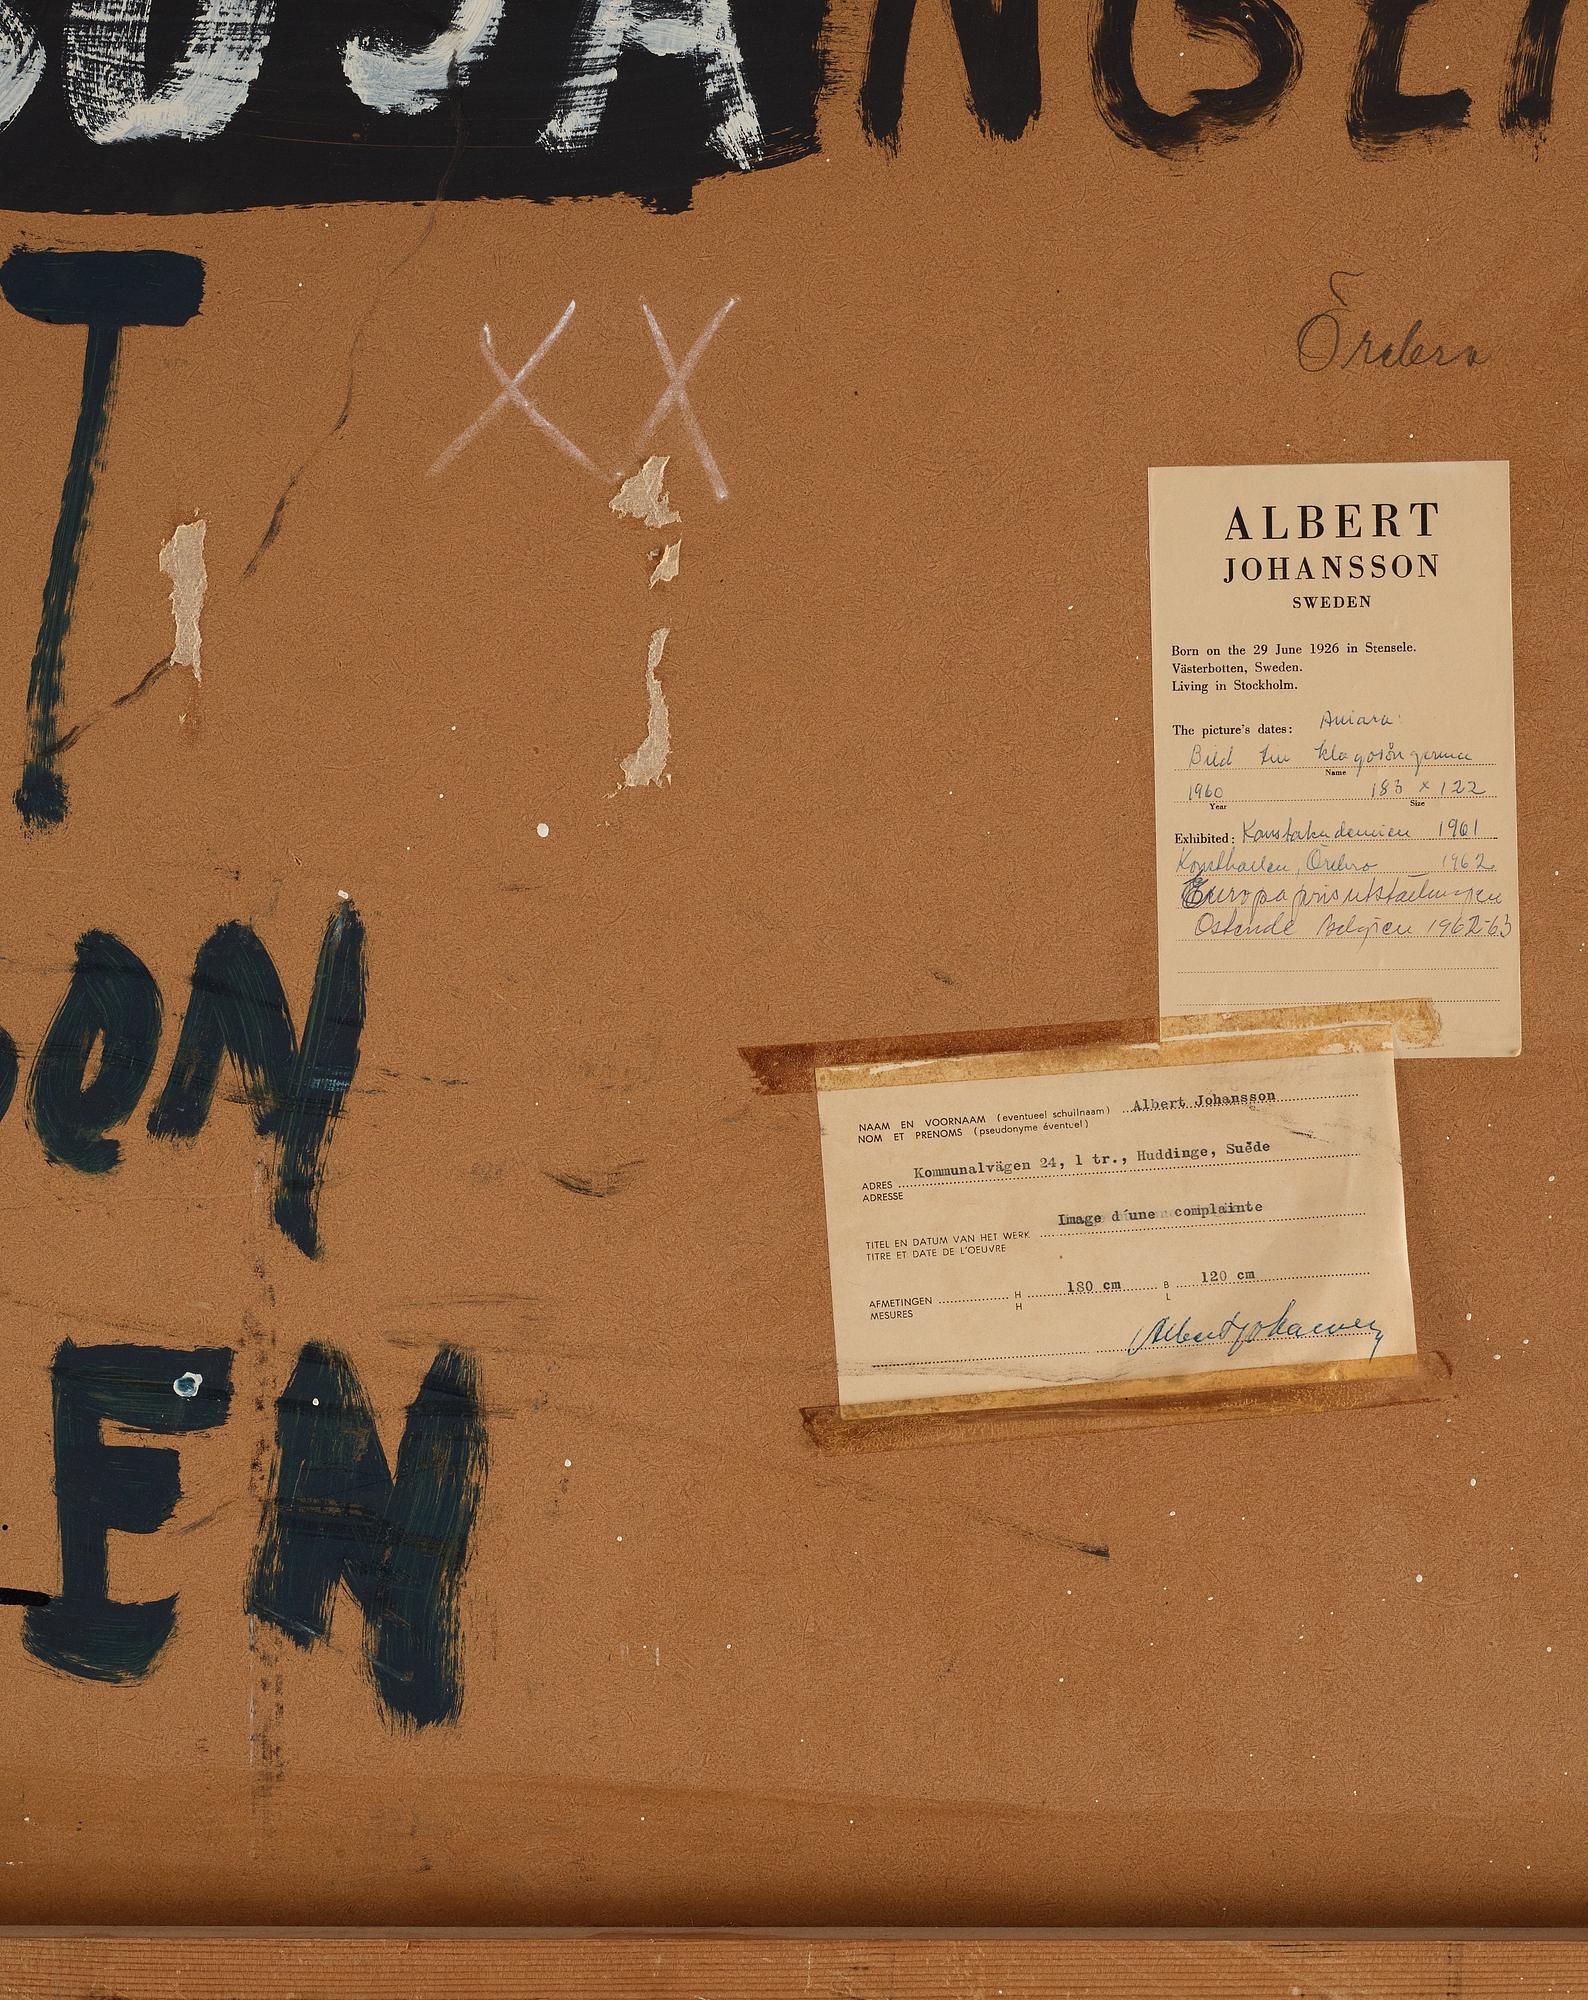 OSÅNGER
T
Örebro
XX
ALBERT
JOHANSSON
SWEDEN
Born on the 29 June 1926 in Stensele.
Västerbotten, Sweden.
Living in Stockholm.
The picture's dates: Aniara:
Bild till klagosångerna
Name
1960 183 x 122
Year Size
Exhibited: Konstakademien 1961
Konsthallen, Örebro 1962
Europaprisutställningen
Ostende Belgien 1962-63
SON
NAAM EN VOORNAAM (eventueel schuilnaam) Albert Johansson
NOM ET PRENOMS (pseudonyme éventuel)
ADRES Kommunalvägen 24, 1 tr., Huddinge, Suéde
ADRESSE
TITEL EN DATUM VAN HET WERK Image d'une complainte
TITRE ET DATE DE L'OEUVRE
AFMETINGEN H 180 cm B 120 cm
MESURES H L
Albert Johansson
EN